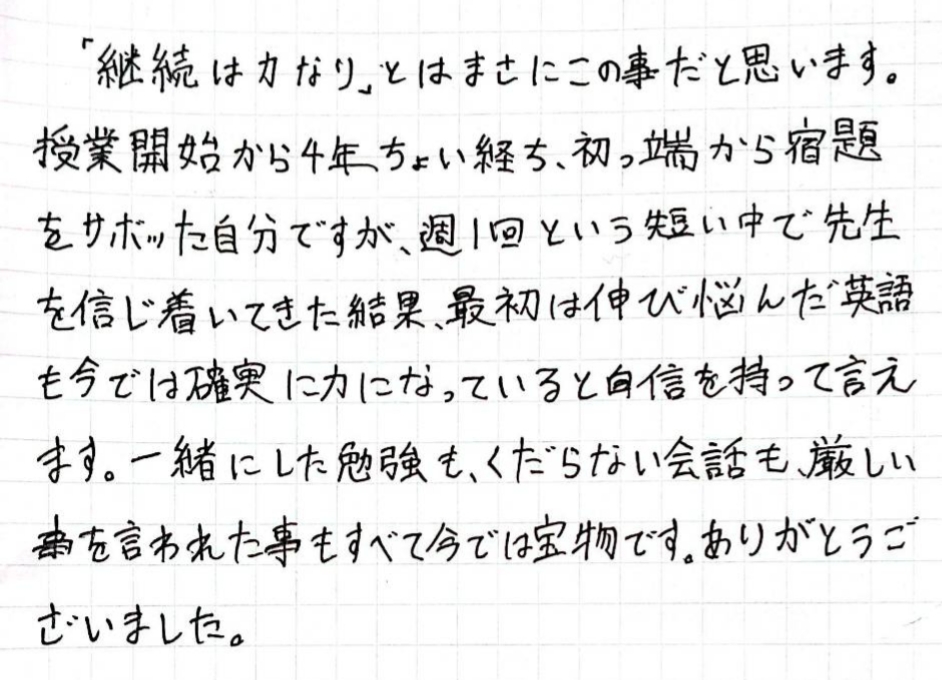 「継続は力なり」とはまさにこの事だと思います。
授業開始から4年ちょい経ち、初っ端から宿題
をサボッた自分ですが、週1回という短い中で先生
を信じ着いてきた結果、最初は伸び悩んだ英語
も今では確実に力になっていると自信を持って言え
ます。一緒にした勉強も、くだらない会話も、厳しい
事を言われた事もすべて今では宝物です。ありがとうご
ざいました。